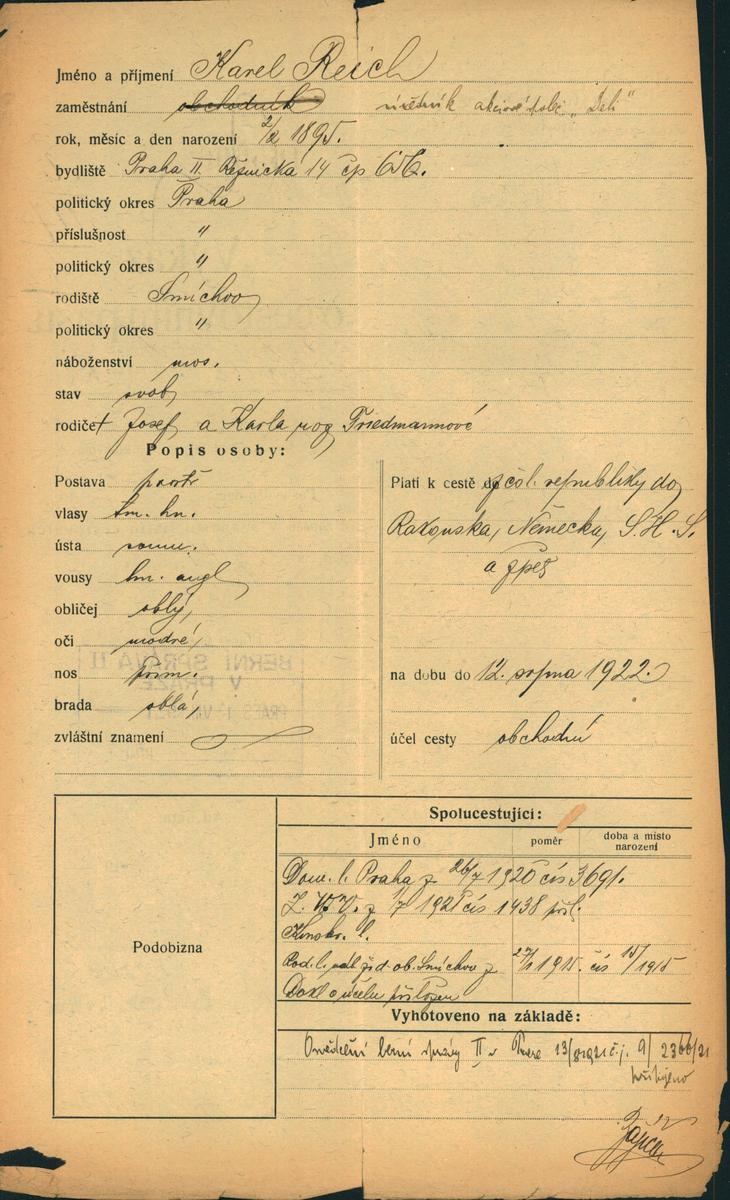 Jméno a příjmení Karel Reich
zaměstnání obchodník úředník akciové spol. „Deli"
rok, měsíc a den narození 2/X 1895.
bydliště Praha II. Řeznická 14 čp 656.
politický okres Praha
příslušnost "
politický okres "
rodiště Smíchov
politický okres "
náboženství mos.
stav svob.
rodiče † Josef a Karla roz Friedmannové
Popis osoby:
Postava prostř.
vlasy tm. hn.
ústa soum.
vousy hn. angl
obličej oblý,
oči modré,
nos přim.
brada oblá,
zvláštní znamení
Platí k cestě do z čsl. republiky do
Rakouska, Německa, S.H.S.
a zpět
na dobu do 12. srpna 1922.
účel cesty obchodní
BERNÍ SPRÁVA II
V PRAZE
Spolucestující:
Jméno poměr doba a místo narození
Podobizna
Dom. l. Praha z 26/7 1920 čís 3691.
1438 příl.
Rod. l. žid. ob. Smíchov z 1915. čís 15/1915
Dokl o účelu přiložen
Vyhotoveno na základě:
Osvědčení berní správy II v Praze 9/2366/21
připojeno